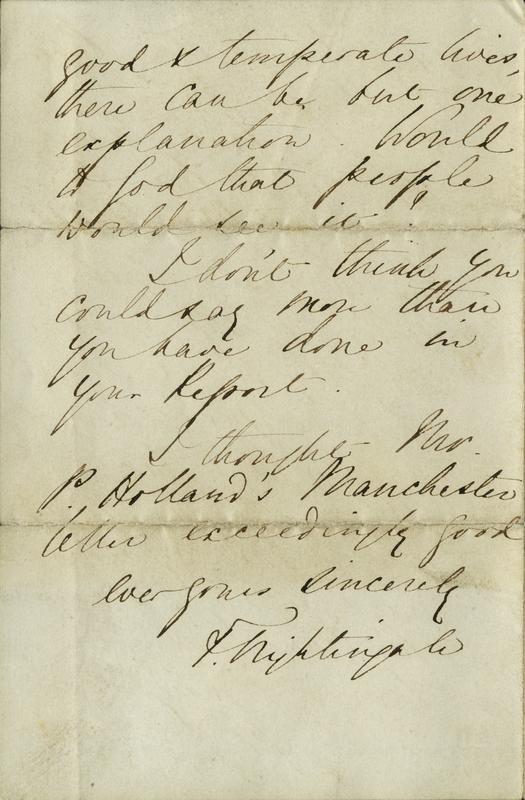 good & temperate lives,
there can be but one
explanation. Would
to God that people
would see it!
I don't think you
could say more than
you have done in
your Report.
I thought Mr.
P. Holland's Manchester
letter exceedingly good
ever yours sincerely
F. Nightingale